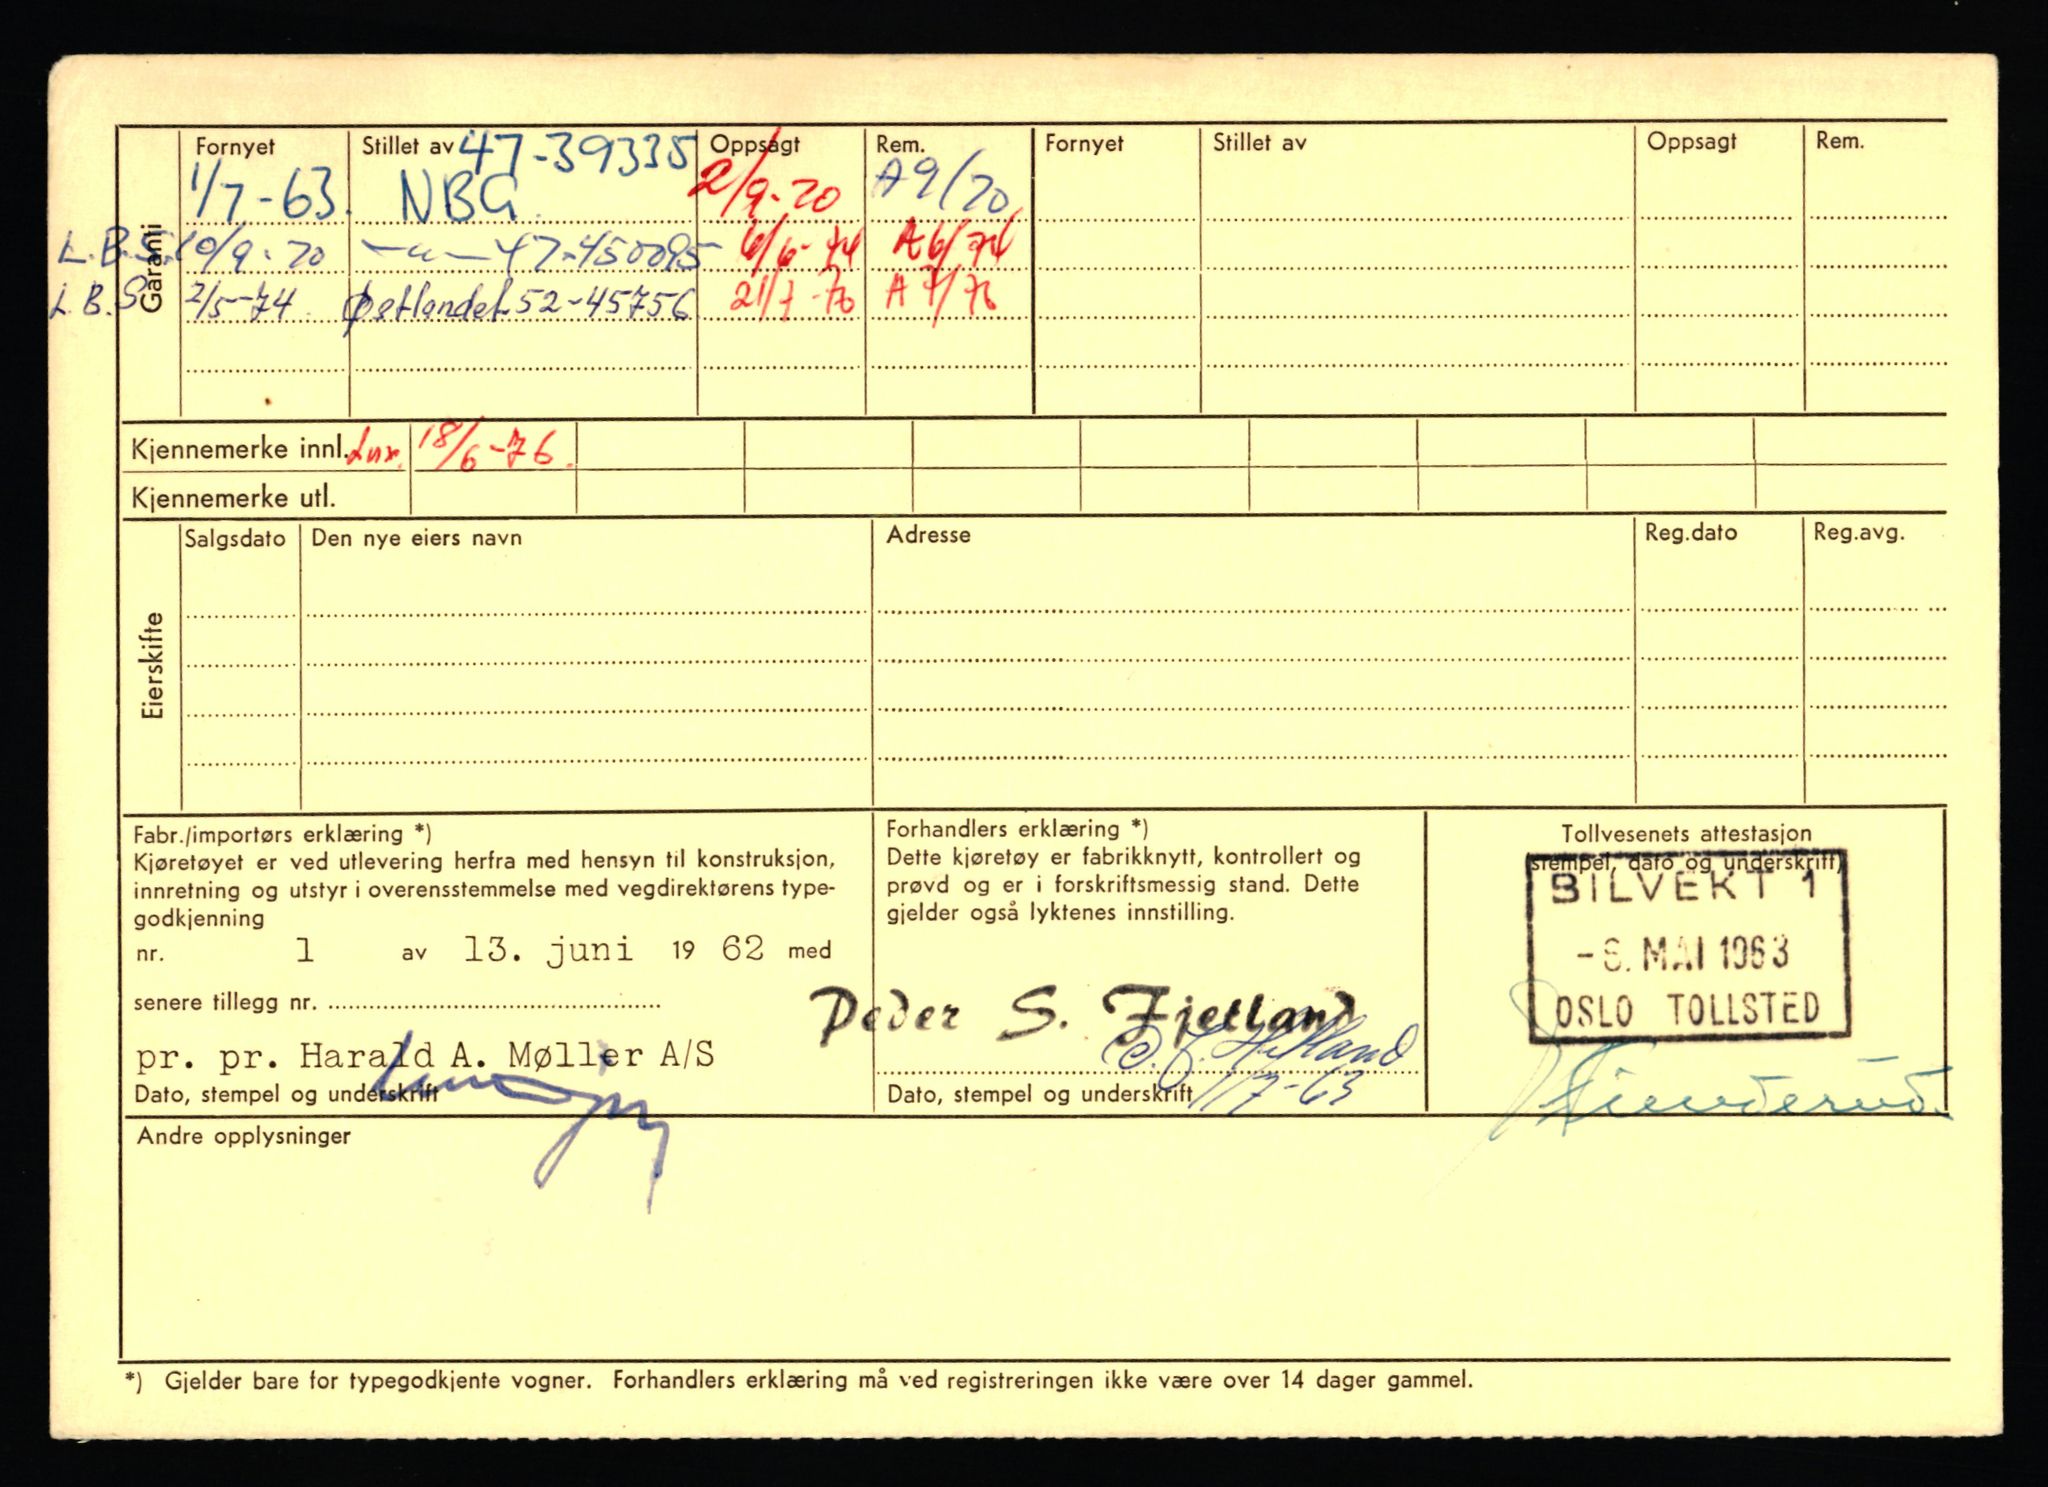 Garanti
Fornyet Stillet av 47-39335 Oppsagt Rem. Fornyet Stillet av Oppsagt Rem.
1/7-63. NBG. 2/9-70 A9/70
L.B.S. 10/9-70 —"— 47-450095 6/6-74 A6/74
L.B.S 2/5-74 Østlandet 52-45756 21/7-76 A7/76
Kjennemerke innl. 18/6-76.
Kjennemerke utl.
Eierskifte
Salgsdato Den nye eiers navn Adresse Reg.dato Reg.avg.
Fabr./importørs erklæring *)
Kjøretøyet er ved utlevering herfra med hensyn til konstruksjon,
innretning og utstyr i overensstemmelse med vegdirektørens type-
godkjenning
nr. 1 av 13. juni 19 62 med
senere tillegg nr.
pr. pr. Harald A. Møller A/S
Dato, stempel og underskrift
Forhandlers erklæring *)
Dette kjøretøy er fabrikknytt, kontrollert og
prøvd og er i forskriftsmessig stand. Dette
gjelder også lyktenes innstilling.
Peder S. Fjetland
1/7-63
Dato, stempel og underskrift
Tollvesenets attestasjon
(stempel, dato og underskrift)
BILVEKT 1
MAI 1963
OSLO TOLLSTED
Andre opplysninger
*) Gjelder bare for typegodkjente vogner. Forhandlers erklæring må ved registreringen ikke være over 14 dager gammel.